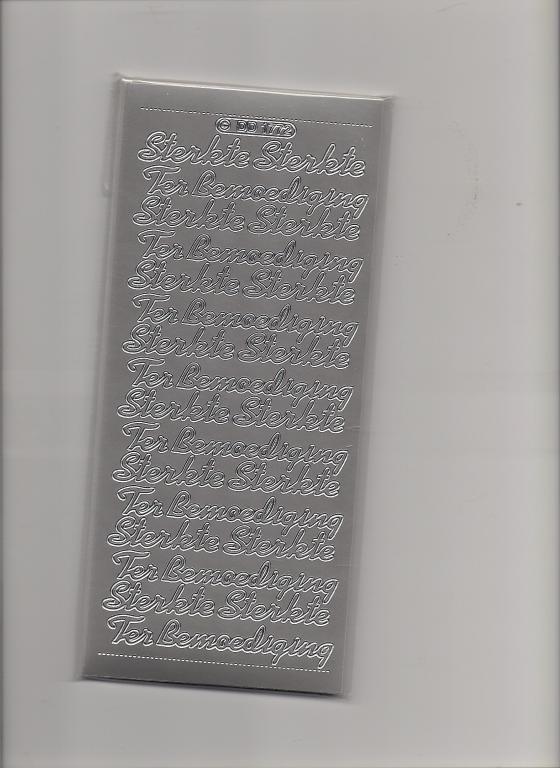 © DD 1772
Sterkte Sterkte
Ter Bemoediging
Sterkte Sterkte
Ter Bemoediging
Sterkte Sterkte
Ter Bemoediging
Sterkte Sterkte
Ter Bemoediging
Sterkte Sterkte
Ter Bemoediging
Sterkte Sterkte
Ter Bemoediging
Sterkte Sterkte
Ter Bemoediging
Sterkte Sterkte
Ter Bemoediging